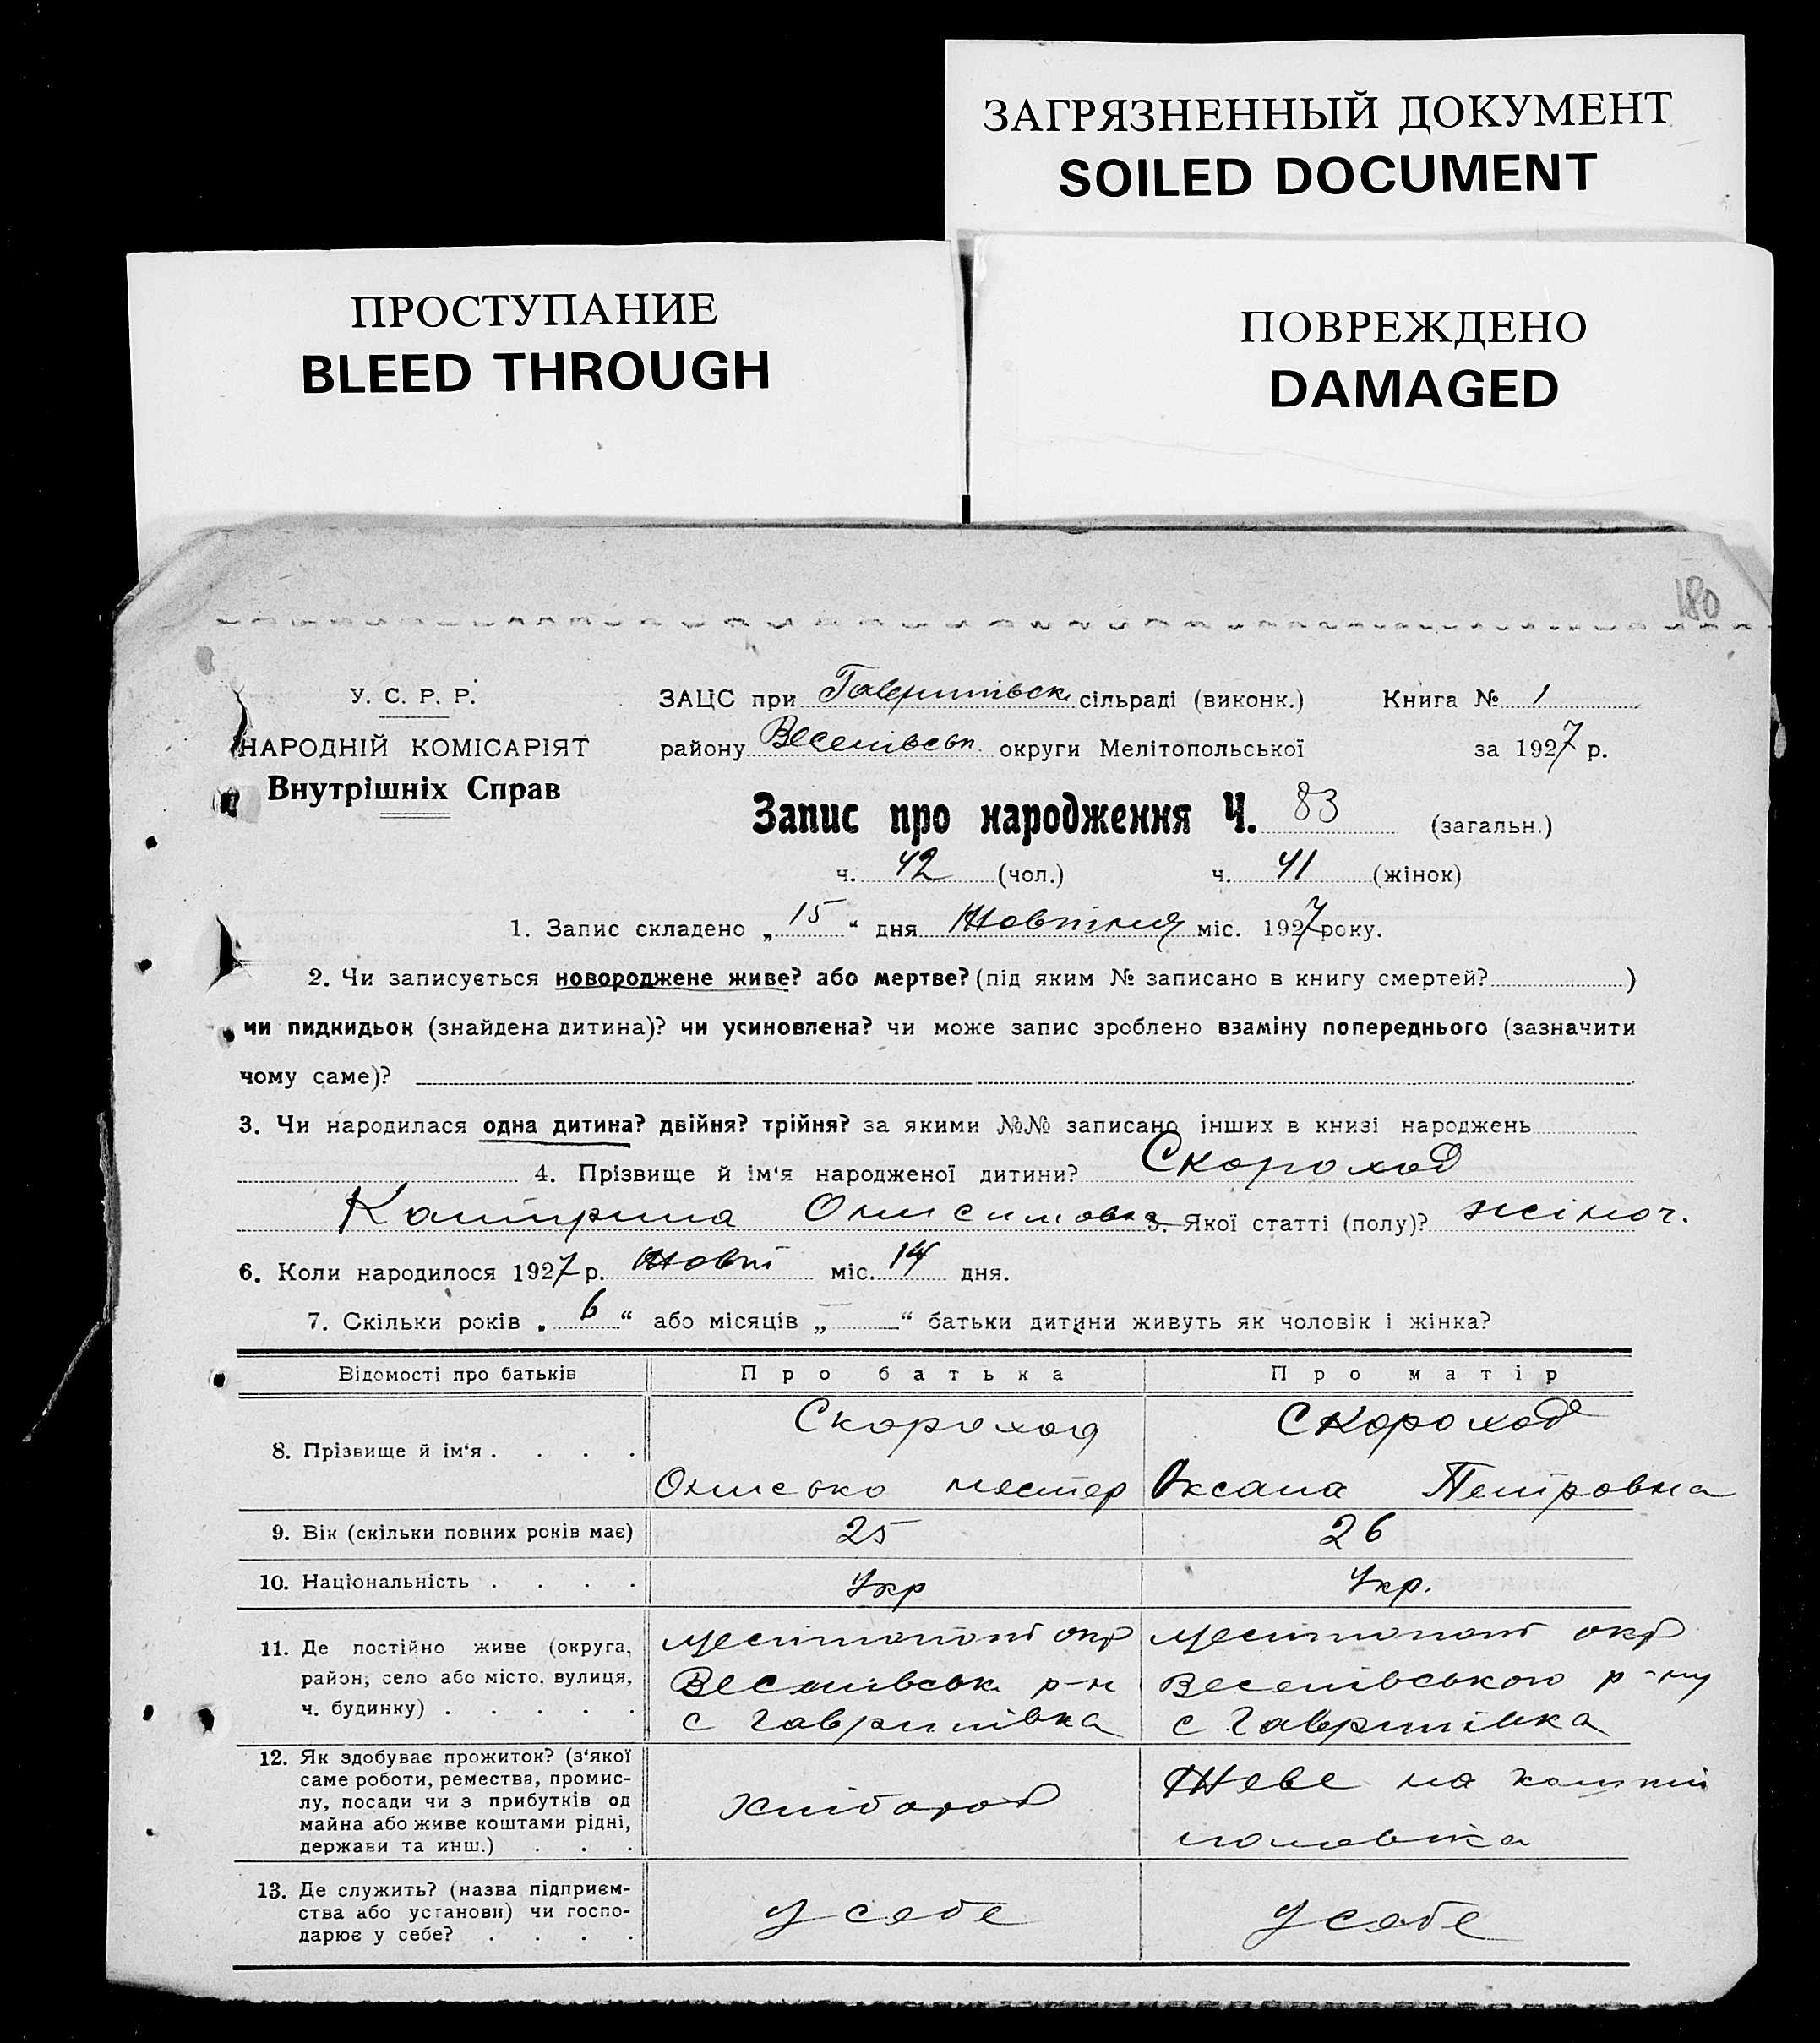 ЗАГРЯЗНЕННЫЙ ДОКУМЕНТ
SOILED DOCUMENT
ПРОСТУПАНИЕ
BLEED THROUGH
ПОВРЕЖДЕНО
DAMAGED
180
У. С. Р. Р.
НАРОДНІЙ КОМІСАРІЯТ
Внутрішніх Справ
ЗАЦС при Гаврилівськ. сільраді (виконк.) Книга № 1
району Веселівськ. округи Мелітопольської за 1927 р.
Запис про народження Ч. 83 (загальн.)
ч. 42 (чол.) ч. 41 (жінок)
1. Запис складено „ 15 “ дня Жовтня міс. 1927 року.
2. Чи записується новороджене живе? або мертве? (під яким № записано в книгу смертей? )
чи пидкидьок (знайдена дитина)? чи усиновлена? чи може запис зроблено взаміну попереднього (зазначити
чому саме)?
3. Чи народилася одна дитина? двійня? трійня? за якими №№ записано інших в книзі народжень
4. Прізвище й ім‘я народженої дитини? Скороход
Катирина Онисимовна 5. Якої статті (полу)? жіноч.
6. Коли народилося 1927 р. Жовт міс. 14 дня.
7. Скільки років „ 6 “ або місяців „ — “ батьки дитини живуть як чоловік і жінка?
Відомості про батьків Про батька Про матір
8. Прізвище й ім‘я . . . . Скороход Скороход
Онисько нестер Оксана Петровна
9. Вік (скільки повних років має) 25 26
10. Національність . . . . Укр Укр.
11. Де постійно живе (округа, район, село або місто, вулиця, ч. будинку) . . . . .
Мелітопол окр
Веселівськ. р-н
с Гаврилівка
Мелітопол окр
Веселівського р-ну
с Гаврилівка
12. Як здобуває прожиток? (з‘якої
саме роботи, ремества, промис-
лу, посади чи з прибутків од
майна або живе коштами рідні,
держави та инш.) . . .
хлібороб
Живе на кошти
чоловіка
13. Де служить? (назва підприєм-
ства або установи) чи госпо-
дарює у себе? . . . .
У себе
У себе